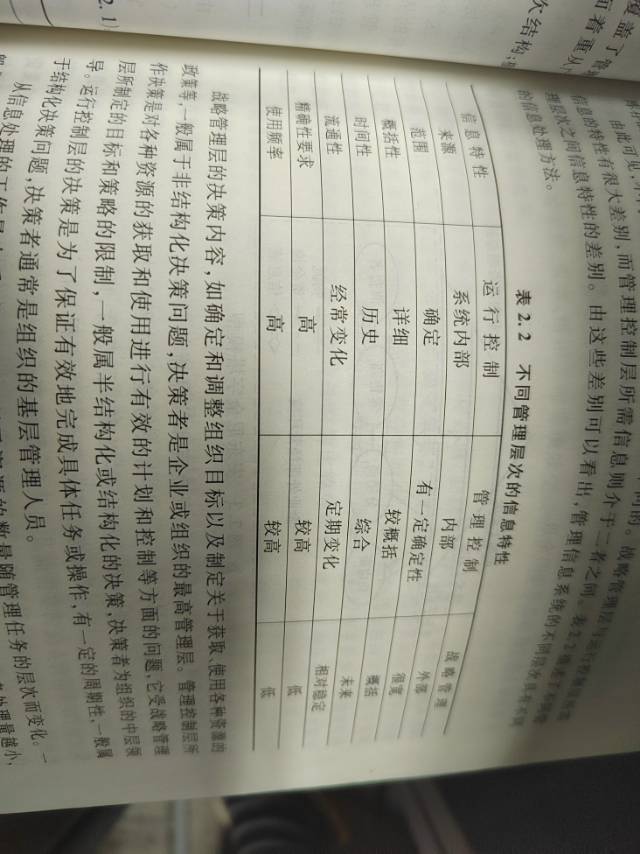 由此可见,
信息的特性有很大差别,而管理控制层所需信息则介于二者之间。表2.2
理层次之间信息特性的差别。由这些差别可以看出,管理信息系统的不同层次
的信息处理方法。
表 2.2 不同管理层次的信息特性
信息特性 运行控制 管理控制 战略管理
来源 系统内部 内部 外部
范围 确定 有一定确定性 很宽
概括性 详细 较概括 概括
时间性 历史 综合 未来
流通性 经常变化 定期变化 相对稳定
精确性要求 高 较高 低
使用频率 高 较高 低
战略管理层的决策内容,如确定和调整组织目标以及制定关于获取、使用各种资源的
政策等,一般属于非结构化决策问题,决策者是企业或组织的最高管理层。管理控制层所
作决策是对各种资源的获取和使用进行有效的计划和控制等方面的问题,它受战略管理
层所制定的目标和策略的限制,一般属半结构化或结构化的决策,决策者为组织的中层领
导。运行控制层的决策是为了保证有效地完成具体任务或操作,有一定的周期性,一般属
于结构化决策问题,决策者通常是组织的基层管理人员。
从信息处理的工作量
的数量随管理任务的层次而变化。一
处理量越小,
2.1)
覆盖了
次结构